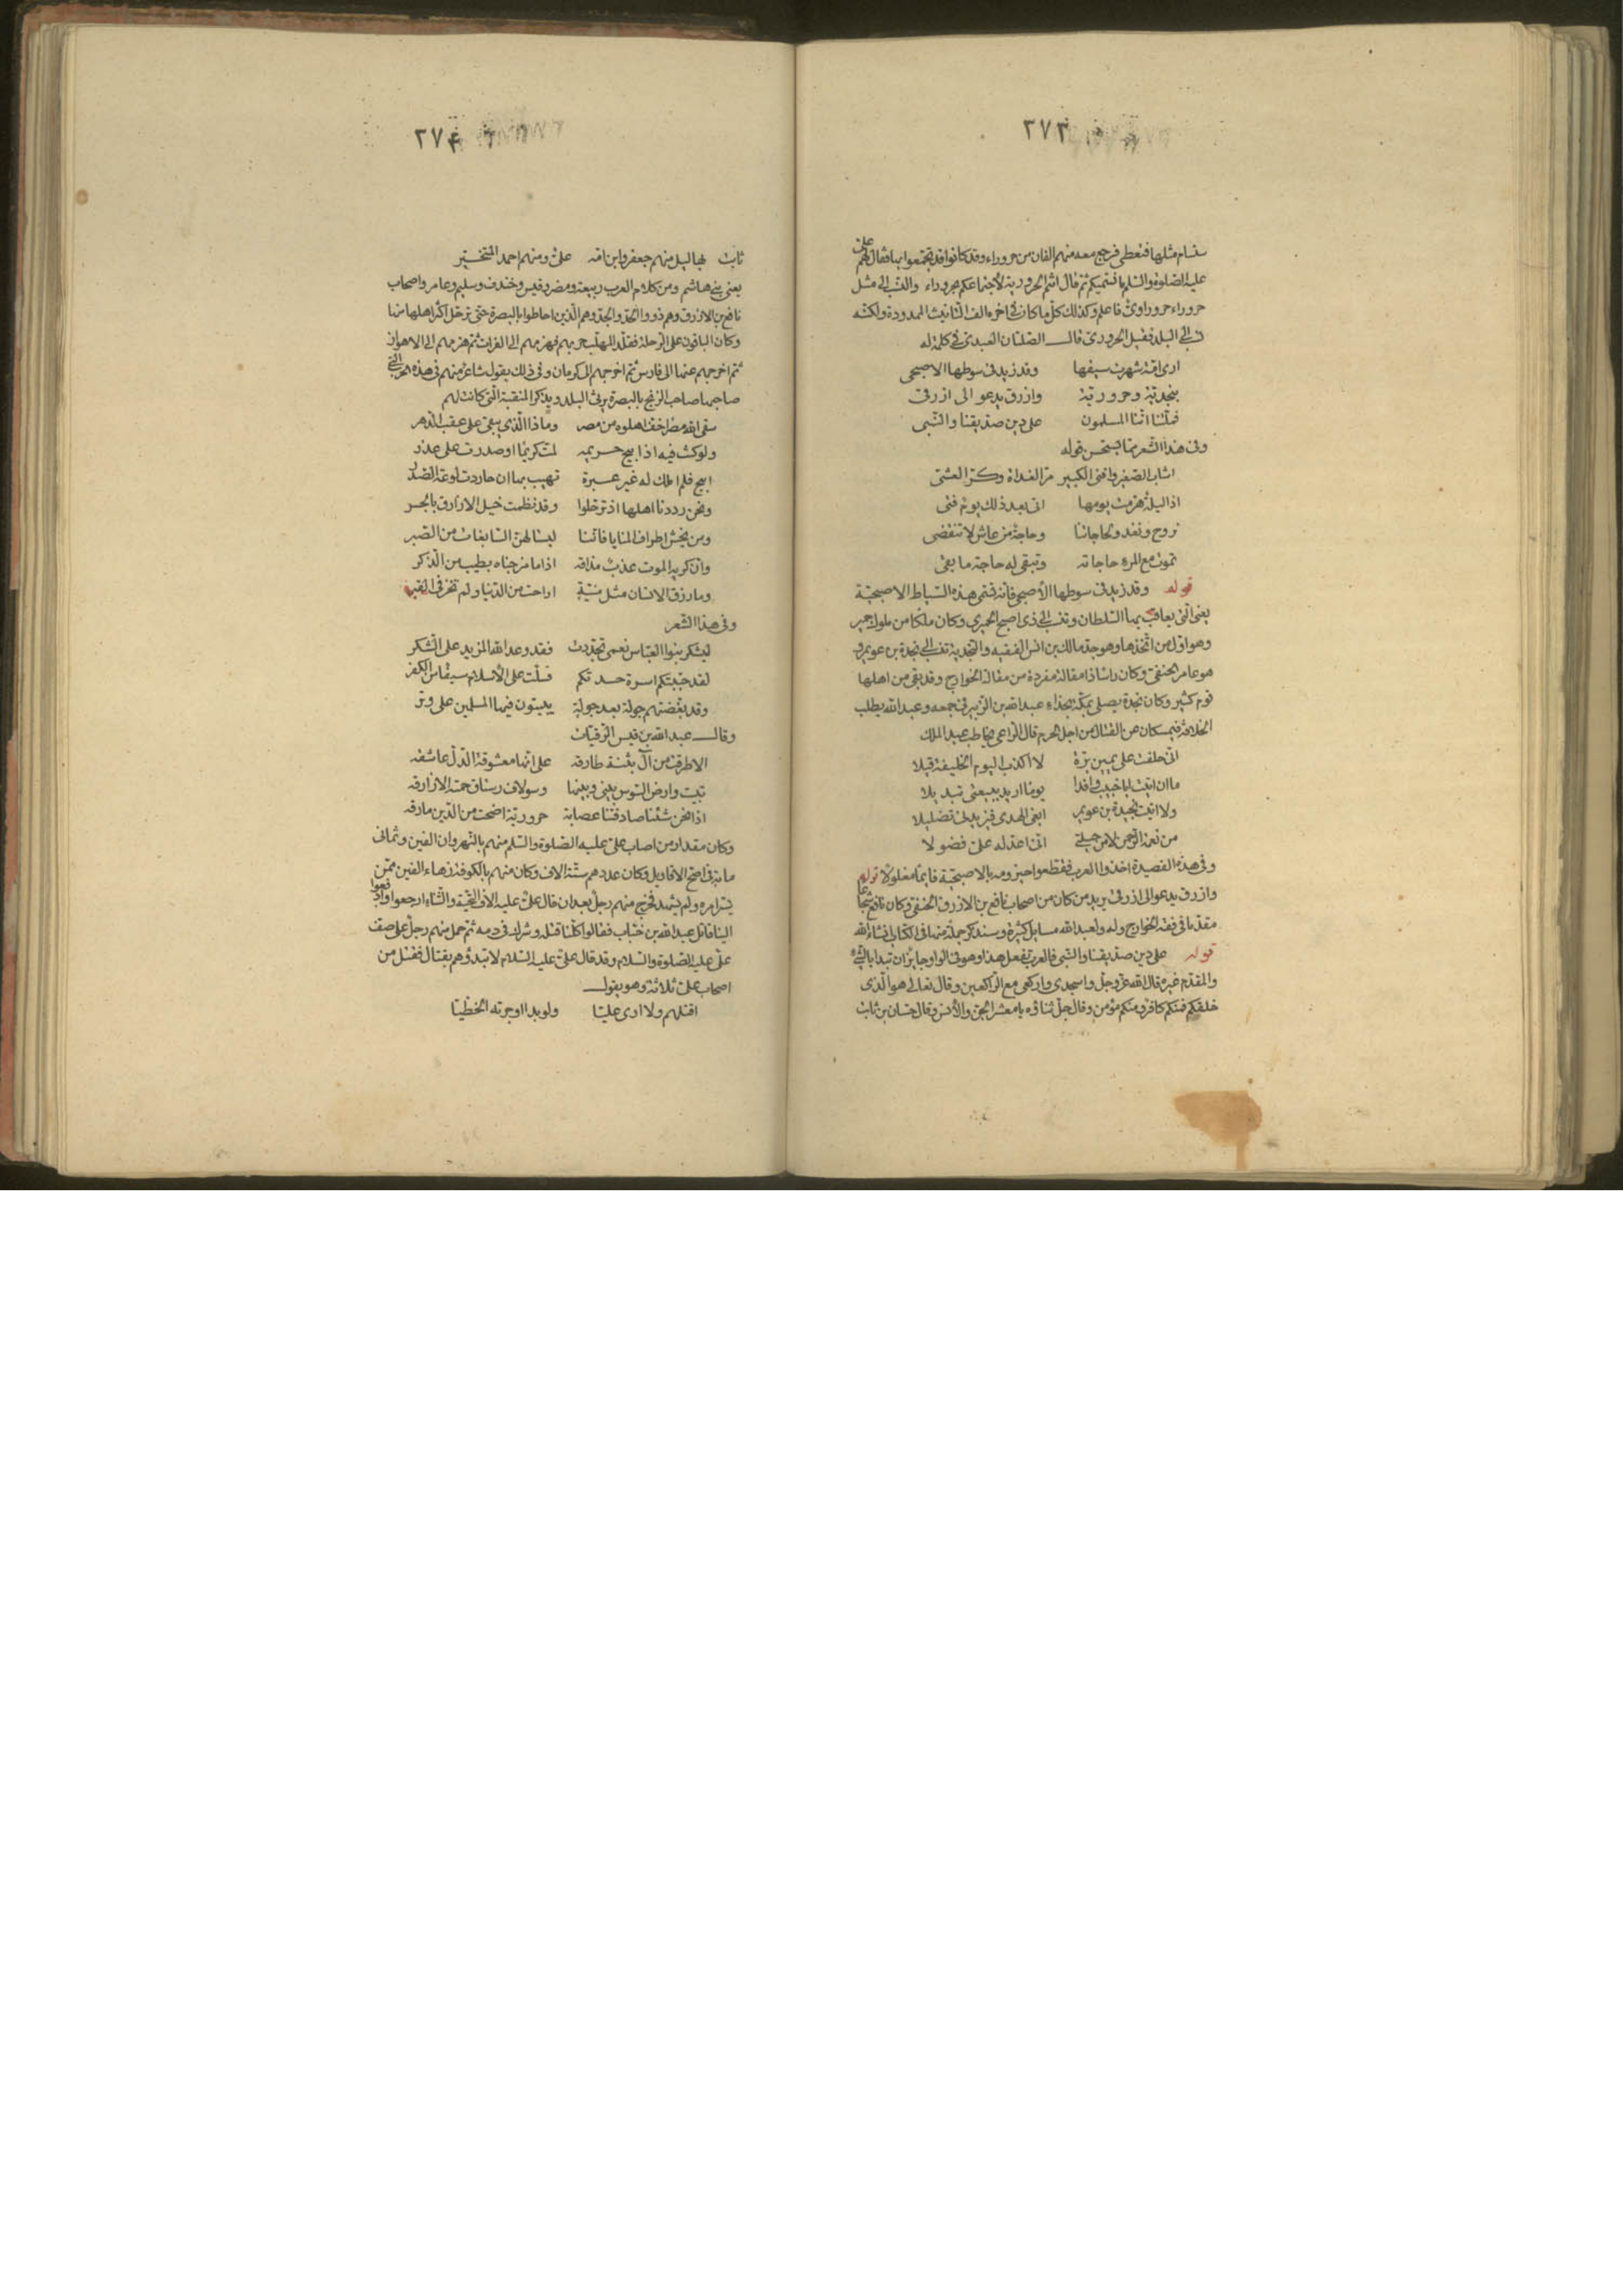 ٢٧٣
ستسام مثلها فتعطى فرجع معه منهم الفان من حروراء وقد كانوا قد تجمعوا بها فقال لهم على
عليه الصلوة والسلم ما نسميكم ثم قال انتم الحرورية لاجتماعكم بحروراء والنسب الى مثل
حروراء حروراوى فاعلم وكذلك كل ما كان فى اخره الف التانيث الممدودة ولكنه
نسب الى البلد فقيل الحرورى قال الصلتان العبدى فى كلمة له
ارى امة شهرت سيفها وقد زيد فى سوطها الاصبحى
بنجدية وحرورية وازرق يدعو الى ازرقى
فملتنا اننا المسلمون على دين صديقنا والنبى
وفى هذا الشعر مما يستحسن قوله
اشاب الصغير وافنى الكبير مر الغداة وكر العشى
اذا ليلة هرمت يومها اتى بعد ذلك يوم فتى
نروح ونغدو لحاجاتنا وحاجة من عاش لا تنقضى
تموت مع المرء حاجاته وتبقى له حاجة ما بقى
قوله وقد زيد فى سوطها الأصبحى فانه تسمى هذه السياط الاصبحية
يعنى التى يعاقب بها السلطان وتنسب الى ذى اصبح الحميرى وكان ملكا من ملوك حمير
وهو اول من اتخذها وهو جد مالك بن انس الفقيه والنجدية تنسب الى نجدة بن عويمر و
هو عامر الحنفى وكان راسا ذا مقالة مفردة من مقالة الخوارج وقد بقى من اهلها
قوم كثير وكان نجدة يصلى بمكة بحذاء عبد الله بن الزبير فى جمعه وعبد الله يطلب
الخلافة فيمسكان عن القتال من اجل الحرم قال الراعى يخاطب عبد الملك
انى حلفت على يمين برة لا اكذب اليوم الخليفة قيلا
ما ان اتيت ابا خبيب وافدا يوما اريد ببيعتى تبديلا
ولا اتيت نجيدة بن عويمر ابغى الهدى فيزيدنى تضليلا
من نعمة الرحمن لا من حيلتى انى اعد له على فضولا
وفى هذه القصيدة اخذوا العريف فقطعوا حيزومه بالاصبحية قايما مغلولا قوله
وازرق يدعو الى ازرقى يريد من كان من اصحاب نافع بن الازرق الحنفى وكان نافع شجاعا
مقدما فى فقه الخوارج وله ولعبد الله مسايل كثيرة وسنذكر جملة منها فى الكتاب ان شاء الله
قوله على دين صديقنا والنبى فالعرب تفعل هذا وهو فى الواو جايز ان تبدا بالشئ
والمقدم غيره قال الله عز وجل واسجدى واركعى مع الراكعين وقال تعالى هو الذى
خلقكم فمنكم كافر ومنكم مؤمن وقال جل ثناؤه يا معشر الجن والأنس وقال حسان بن ثابت
٢٧٤
ثابت بهاليل منهم جعفر وابن امه على ومنهم احمد المتخير
يعنى بنى هاشم ومن كلام العرب ربيعة ومضر وقيس وخندف وسليم وعامر واصحاب
نافع بن الازرق وهم ذوو الحد والجد وهم الذين احاطوا بالبصرة حتى ترحل اكثر اهلها منها
وكان الباقون على الرحلة فقلد المهلب حربهم فهزمهم الى الفرات ثم هزمهم الى الاهواز
ثم اخرجهم عنها الى فارس ثم اخرجهم الى كرمان وفى ذلك يقول شاعر منهم فى هذه الحرب التى
صاحبها صاحب الزنج بالبصرة يرثى البلد ويذكر المنقبة التى كانت لهم
سقى الله مصرا خف اهلوه من مصر وماذا الذى يبقى على عقب الدهر
ولو كنت فيه اذ ابيح حريمه لمت كريما او صدرت على عذر
ابيح فلم املك له غير عبرة تهيب بها ان حاردت لوعة الصدر
ونحن رددنا اهلها اذ ترحلوا وقد نظمت خيل الازارق بالجسر
ومن يخش اطراف المنايا فاننا لبسنا لهن السابغات من الصبر
وان كريه الموت عذب مذاقه اذا ما مزجناه بطيب من الذكر
وما رزق الانسان مثل منية اراحت من الدنيا ولم تخز فى القبر
وفى هذا الشعر
ليشكر بنوا العباس نعمى تجددت فقد وعد الله المزيد على الشكر
لقد جنبتكم اسرة حسدتكم فسلت على الأسلام سيفا من الكفر
وقد نغصتهم جولة بعد جولة يبيتون فيها المسلمين على وتر
وقال عبد الله بن قيس الرقيات
الا طرقت من آل بثنة طارقه على انها معشوقة الدل عاشقه
تبيت وارض السوس بينى وبينها وسولاف رستاق حمته الازارقه
اذا نحن شئنا صادفتنا عصابة حرورية اضحت من الدين مارقه
وكان مقدار من اصاب على عليه الصلوة والسلم منهم بالنهروان الفين وثمانى
مائة فى اصح الاقاويل وكان عددهم ستة الاف وكان منهم بالكوفة زهاء الفين ممن
يسر امره ولم يشهد فخرج منهم رجل بعد ان قال على عليه الاف التحية والثناء ارجعوا وادفعوا
الينا قاتل عبد الله بن خباب فقالوا كلنا قتله وشرك فى دمه ثم حمل منهم رجل على صف
على عليه الصلوة والسلام وقد قال على عليه السلام لا تبدؤهم بقتال فقتل من
اصحاب على ثلاثة وهو يقول
اقتلهم ولا ارى عليا ولو بدا اوجرته الخطيا